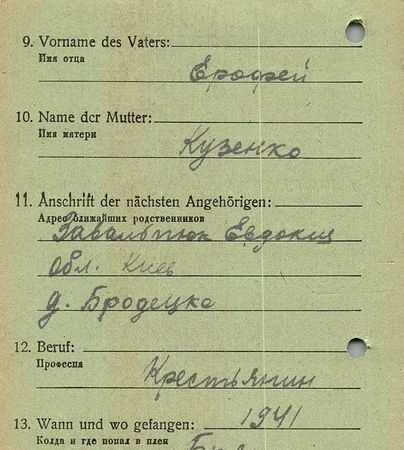 9. Vorname des Vaters:
Имя отца
Ерофей
10. Name der Mutter:
Имя матери
Кузенко
11. Anschrift der nächsten Angehörigen:
Адрес ближайших родственников
Евдокия
обл. Киев
д. Бродецка
12. Beruf:
Професия
Крестьянин
13. Wann und wo gefangen: 1941
Колда и где попал в плен